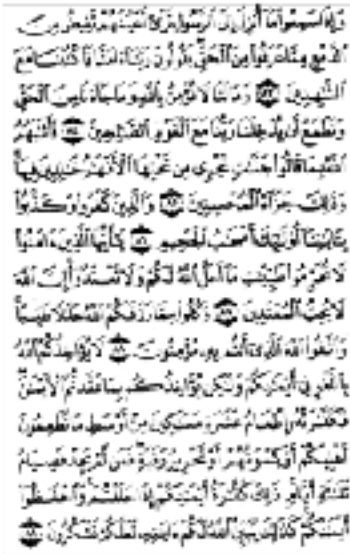 وَإِذَا سَمِعُوا مَا أُنزِلَ إِلَى الرَّسُولِ تَرَىٰ أَعْيُنَهُمْ تَفِيضُ مِنَ
الدَّمْعِ مِمَّا عَرَفُوا مِنَ الْحَقِّ يَقُولُونَ رَبَّنَا آمَنَّا فَاكْتُبْنَا مَعَ
الشَّاهِدِينَ ٨٣ وَمَا لَنَا لَا نُؤْمِنُ بِاللَّهِ وَمَا جَاءَنَا مِنَ الْحَقِّ
وَنَطْمَعُ أَن يُدْخِلَنَا رَبُّنَا مَعَ الْقَوْمِ الصَّالِحِينَ ٨٤ فَأَثَابَهُمُ
اللَّهُ بِمَا قَالُوا جَنَّاتٍ تَجْرِي مِن تَحْتِهَا الْأَنْهَارُ خَالِدِينَ فِيهَا
وَذَٰلِكَ جَزَاءُ الْمُحْسِنِينَ ٨٥ وَالَّذِينَ كَفَرُوا وَكَذَّبُوا
بِآيَاتِنَا أُولَٰئِكَ أَصْحَابُ الْجَحِيمِ ٨٦ يَا أَيُّهَا الَّذِينَ آمَنُوا
لَا تُحَرِّمُوا طَيِّبَاتِ مَا أَحَلَّ اللَّهُ لَكُمْ وَلَا تَعْتَدُوا إِنَّ اللَّهَ
لَا يُحِبُّ الْمُعْتَدِينَ ٨٧ وَكُلُوا مِمَّا رَزَقَكُمُ اللَّهُ حَلَالًا طَيِّبًا
وَاتَّقُوا اللَّهَ الَّذِي أَنتُم بِهِ مُؤْمِنُونَ ٨٨ لَا يُؤَاخِذُكُمُ اللَّهُ
بِاللَّغْوِ فِي أَيْمَانِكُمْ وَلَٰكِن يُؤَاخِذُكُم بِمَا عَقَّدتُّمُ الْأَيْمَانَ
فَكَفَّارَتُهُ إِطْعَامُ عَشَرَةِ مَسَاكِينَ مِنْ أَوْسَطِ مَا تُطْعِمُونَ
أَهْلِيكُمْ أَوْ كِسْوَتُهُمْ أَوْ تَحْرِيرُ رَقَبَةٍ فَمَن لَّمْ يَجِدْ فَصِيَامُ
ثَلَاثَةِ أَيَّامٍ ذَٰلِكَ كَفَّارَةُ أَيْمَانِكُمْ إِذَا حَلَفْتُمْ وَاحْفَظُوا
أَيْمَانَكُمْ كَذَٰلِكَ يُبَيِّنُ اللَّهُ لَكُمْ آيَاتِهِ لَعَلَّكُمْ تَشْكُرُونَ ٨٩